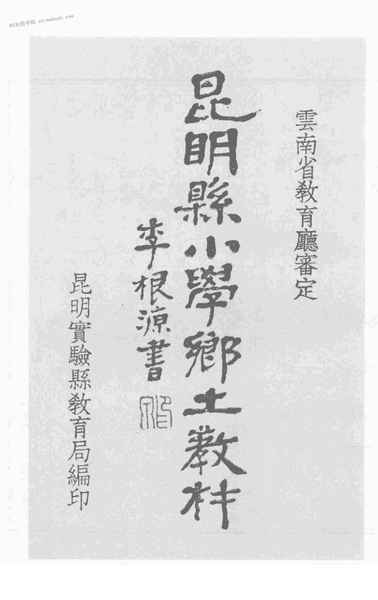 雲南省教育廳審定
昆明縣小學鄉土教材
李根源書
昆明實驗縣教育局編印